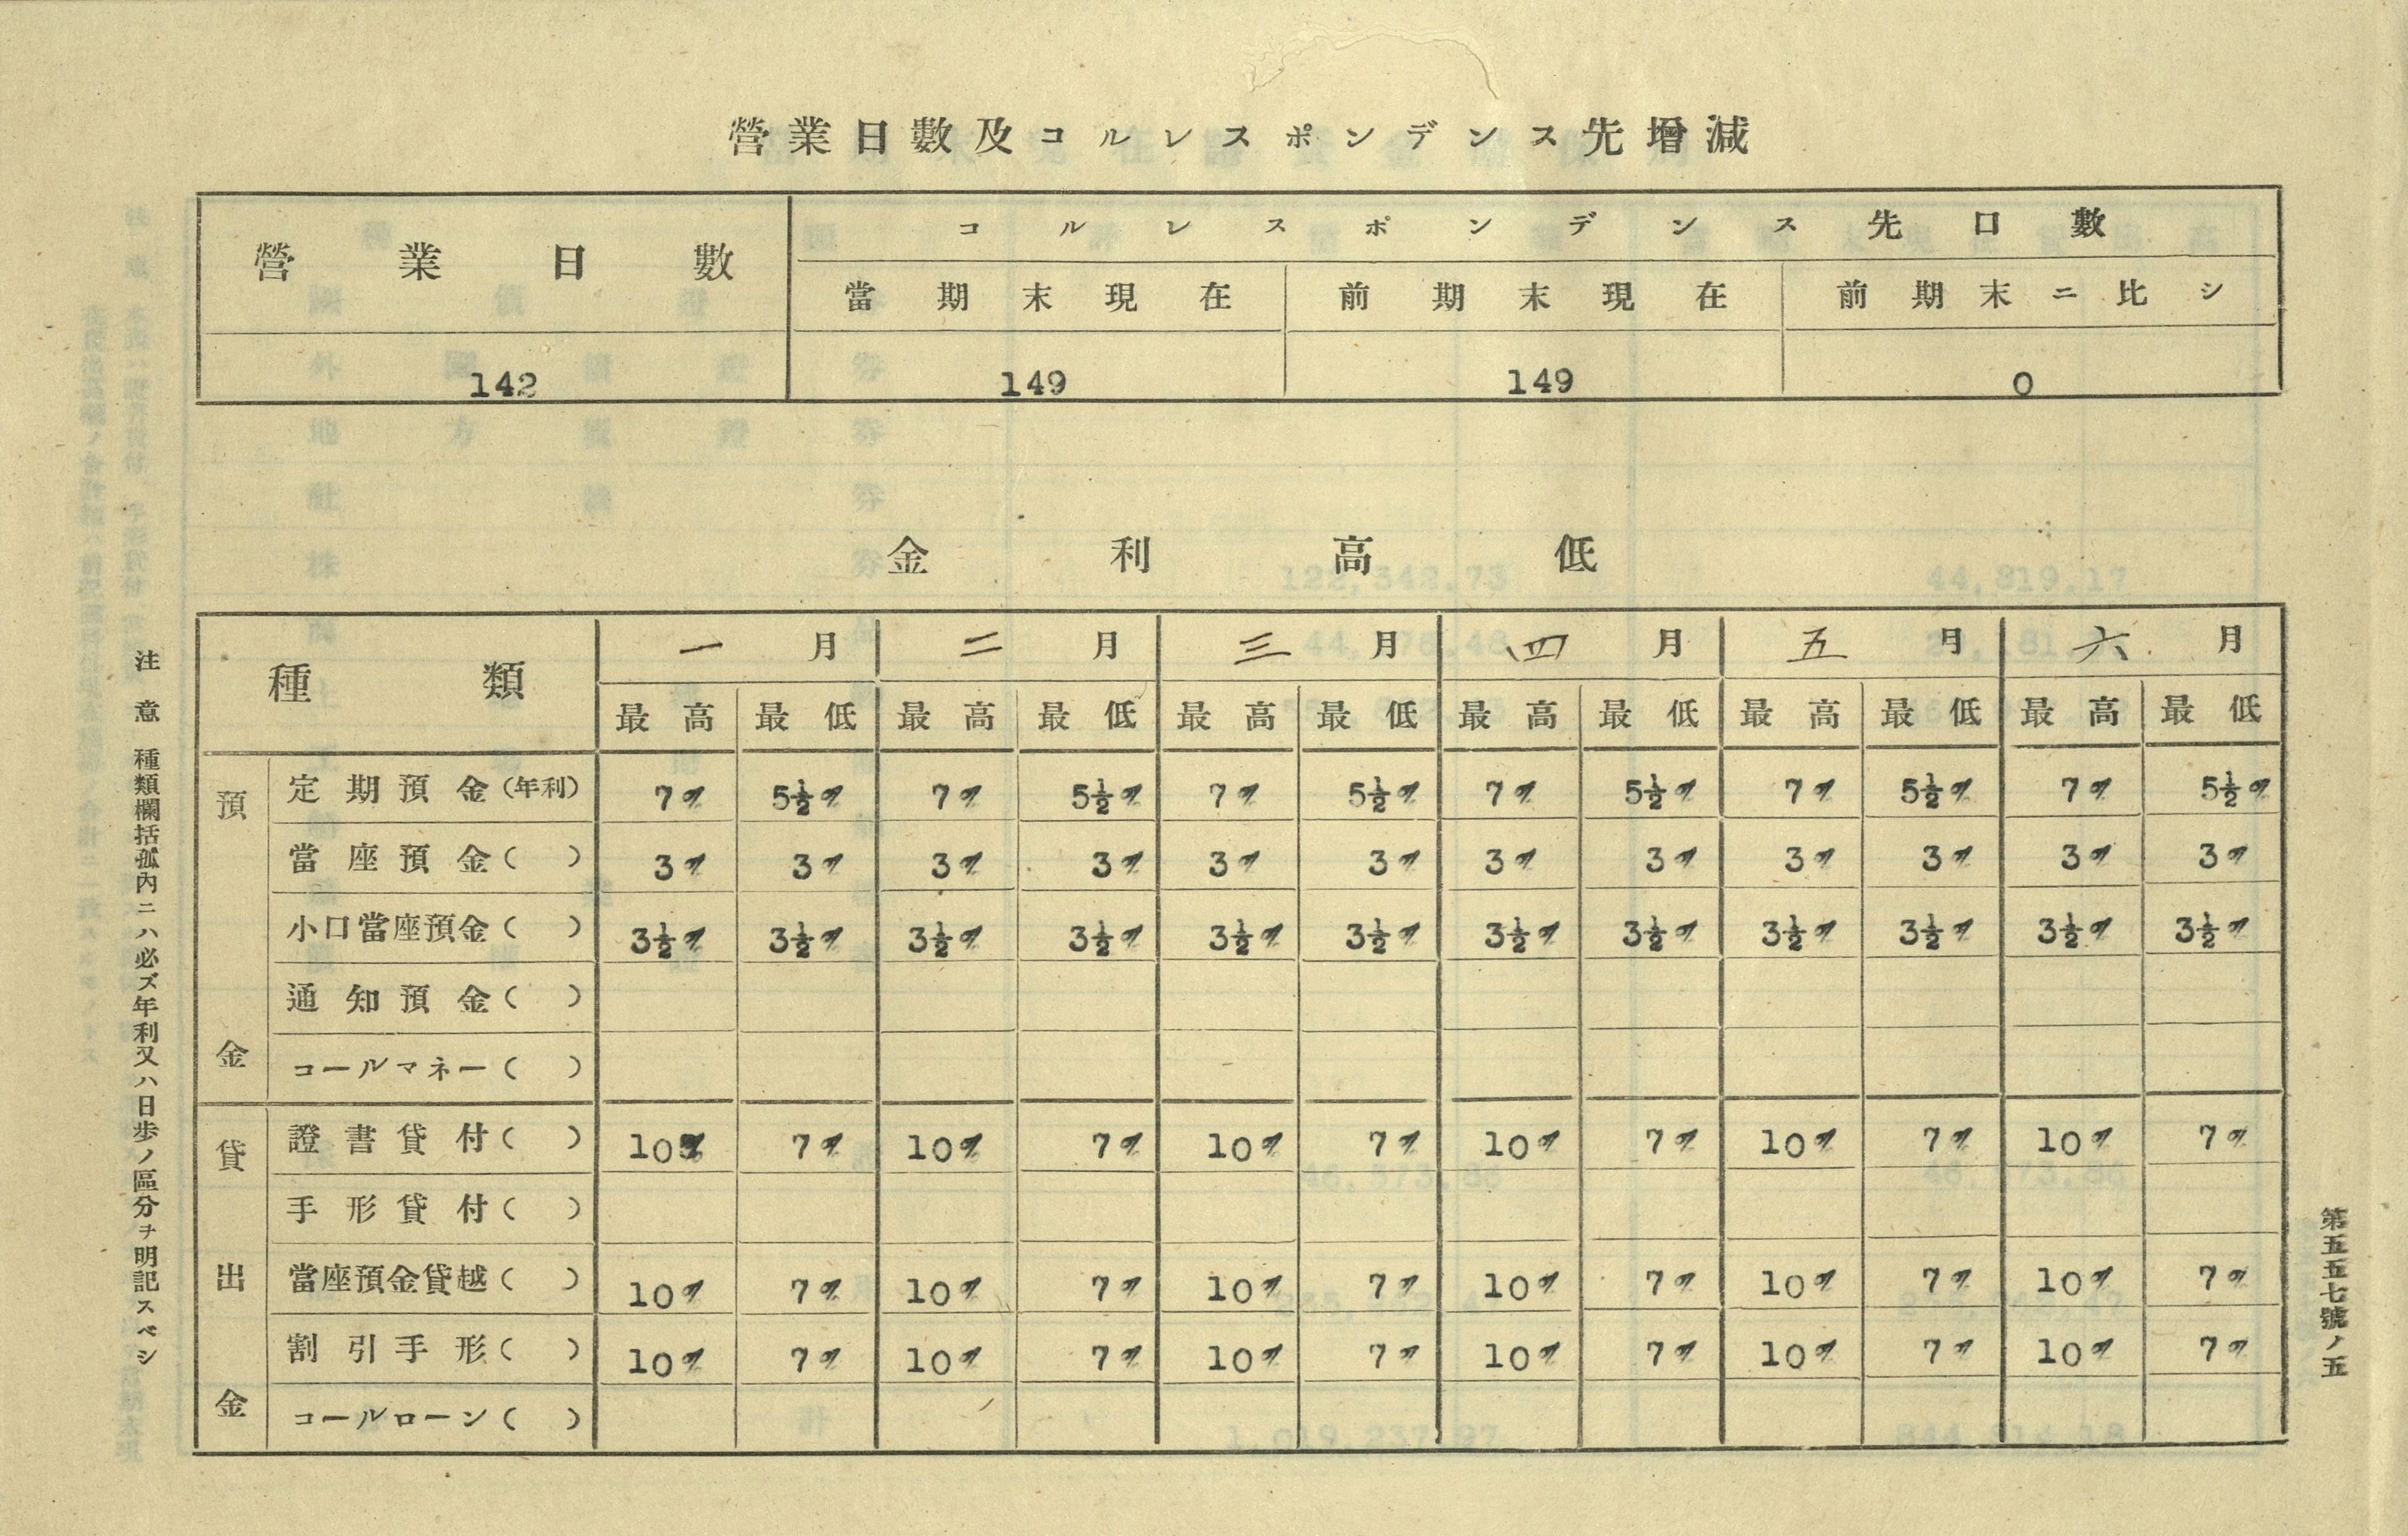 營業日數及コルレスポンデンス先增減
營業日數
コルレスポンデンス先口數
當期末現在 前期末現在 前期末ニ比シ
142 149 149 0
金利高低
種類 一月 二月 三月 四月 五月 六月
最高 最低 最高 最低 最高 最低 最高 最低 最高 最低 最高 最低
預金
定期預金(年利) 7% 5½% 7% 5½% 7% 5½% 7% 5½% 7% 5½% 7% 5½%
當座預金( ) 3% 3% 3% 3% 3% 3% 3% 3% 3% 3% 3% 3%
小口當座預金( ) 3½% 3½% 3½% 3½% 3½% 3½% 3½% 3½% 3½% 3½% 3½% 3½%
通知預金( )
コールマネー( )
貸出金
證書貸付( ) 10% 7% 10% 7% 10% 7% 10% 7% 10% 7% 10% 7%
手形貸付( )
當座預金貸越( ) 10% 7% 10% 7% 10% 7% 10% 7% 10% 7% 10% 7%
割引手形( ) 10% 7% 10% 7% 10% 7% 10% 7% 10% 7% 10% 7%
コールローン( )
注意 種類欄括孤內ニハ必ズ年利又ハ日歩ノ區分ヲ明記スベシ
第五五五七號ノ五